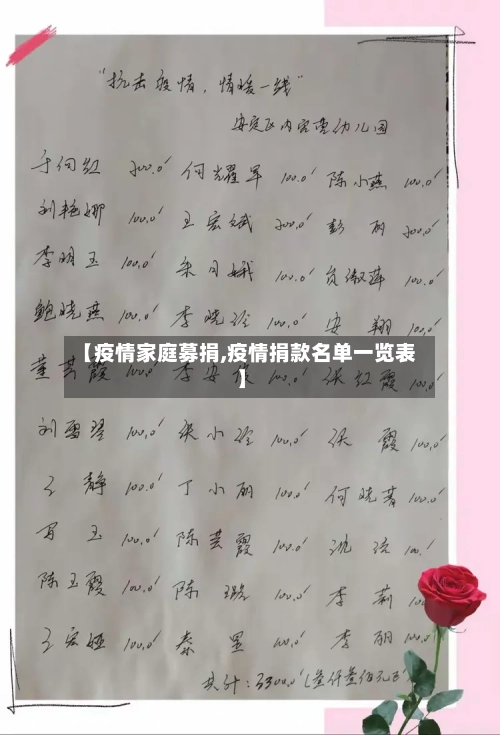 "抗击疫情，情暖一线"
安定区内官营幼儿园
于向红 200.0 何耀军 100.0 陈小燕 100.0
刘艳娜 100.0 王宏斌 200.0 彭丽 200.0
李明玉 100.0 朱月娥 100.0 负淑萍 100.0
鲍晓燕 100.0 李晓玲 100.0 安翔 100.0
【疫情家庭募捐,疫情捐款名单一览表
】
董芸霞 100.0 李安 100.0 张红霞 100.0
刘雪琴 100.0 张小玲 100.0 张霞 100.0
王静 100.0 丁小丽 100.0 何晓菁 100.0
玉 100.0 陈芸霞 100.0 沈洁 100.
陈玉霞 100.0 陈璐 100.0 李莉
王宏娅 100.0 秦 100.0 李丽 100.0
共计：3300.0（叁仟叁佰元